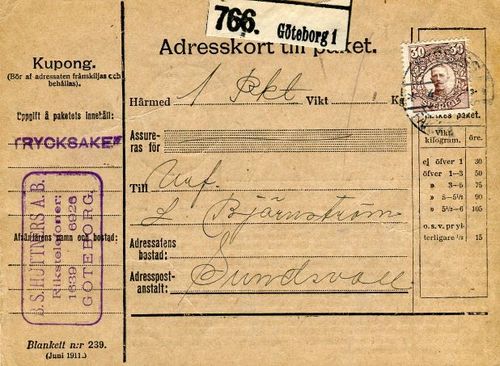 766. Göteborg 1
Kupong.
(Bör af adressaten frånskiljas och
behållas).
Uppgift å paketets innehåll:
TRYCKSAKER
B.S. HÜTTNERS A.B.
Rikstelefoner:
1839 6926
GÖTEBORG.
Afsändarens namn och bostad:
Blankett n:r 239.
(Juni 1911.)
Adresskort till paket.
Härmed 1 Pkt Vikt Kg
Assure-
ras för
Till
L Björnström
Adressatens
bostad:
Adresspost-
anstalt: Sundsvall
30 30
SVERIGE
paket.
Vikt kilogram. öre.
ej öfver 1 30
öfver 1—3 50
» 3—5 75
» 5—5½ 90
» 5½—6 105
o. s. v. pr yt-
terligare ½ 15